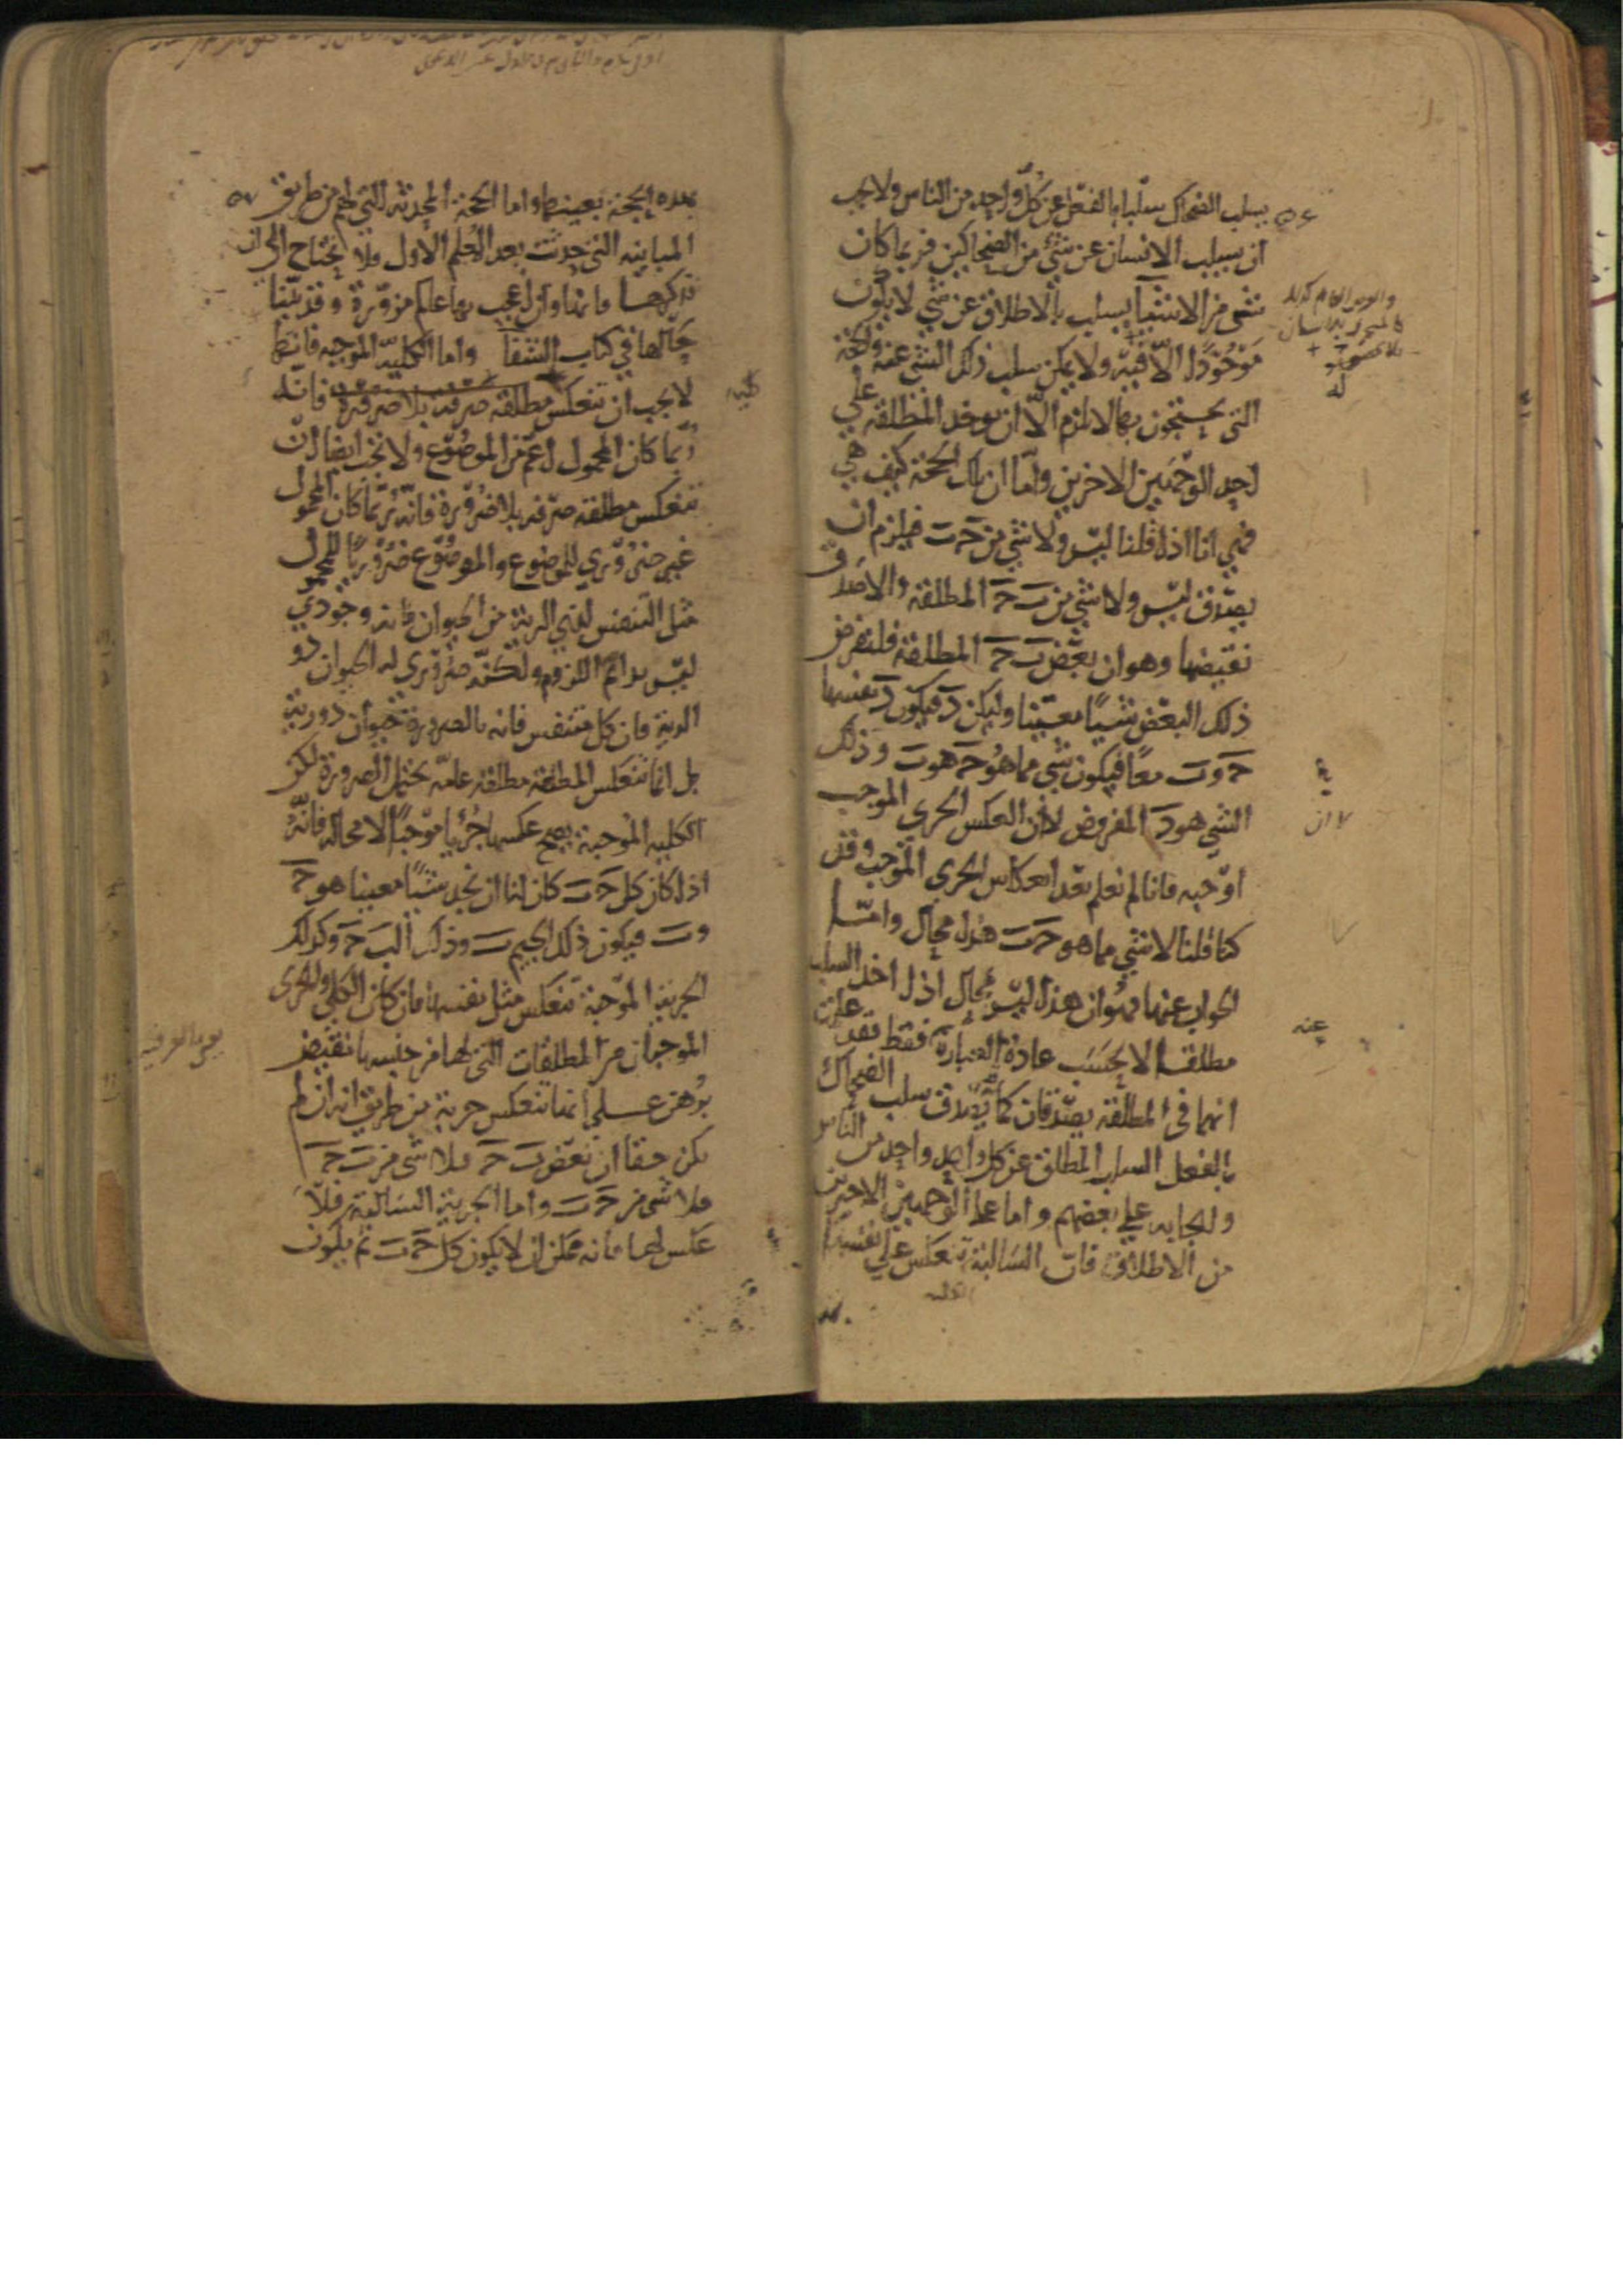 يسلب الضحاك سلبا بالفعل عن كل واحد من الناس ولا يجب
ان يسلب الانسان عن شي من الضحاكين فربما كان
شي من الاشيا يسلب بالاطلاق عن شي لا يكون
موجودا الا فيه ولا يمكن سلب ذلك الشي عنه والحجة
التي يحتجون بها لا تلزم الا ان يوخذ المطلقة علي
احد الوجهين الاخرين واما ان تلك الحجة كيف هي
فهي انا اذا قلنا ليس ولا شي من جـ ب فيلزم ان
يصدق ليس ولا شي من ب جـ المطلقة والا صدق
نقيضها وهو ان بعض ب جـ المطلقة فلنفرض
ذلك البعض شيا معينا وليكن د فيكون د نفسها
جـ و ب معا فيكون شي مما هو جـ هو ب وذلك
الشي هو د المفروض لا ان العكس الجزي الموجب
اوجبه فانا لم نعلم بعد انعكاس الجزي الموجب وقد
كنا قلنا لا شي مما هو جـ ب هذا محال واما
الجواب عنها فهو ان هذا ليس بمحال اذا اخذ السلب
مطلقا لا بحسب عادة العبارة فقط فقد علمت
انهما في المطلقة يصدقان كما يصدق سلب الضحاك
بالفعل السلب المطلق عن كل واحد واحد من الناس
وايجابه علي بعضهم واما علي الوجهين الاخرين
من الاطلاق فان السالبة تنعكس علي نفسها
لا ان
عنه
بهذه الحجة بعينها واما الحجة المحدثة التي لهم من طريق
المباينة التي حدثت بعد المعلم الاول فلا يحتاج الي ان
نذكرها فانها وان اعجب بها عالم مزورة وقد بينا
حالها في كتاب الشفا واما الكلية الموجبة فانها
لا يجب ان تنعكس مطلقة صرفة بلا ضرورة فانه
ربما كان المحمول اعم من الموضوع ولا يجب ايضا ان
تنعكس مطلقة صرفة بلا ضرورة فانه ربما كان المحمول
غير ضروري للموضوع والموضوع ضروريا للمحمول
مثل التنفس لذي الرية من الحيوان فانه وجودي
ليس بدايم اللزوم ولكنه ضروري له الحيوان ذو
الرية فان كل متنفس فانه بالضرورة حيوان ذو رية
بل انما تنعكس المطلقة مطلقة عامة تحتمل الضرورة لكن
الكلية الموجبة يصح عكسها جزيا موجبا لا محالة فانه
اذا كان كل جـ ب كان لنا ان نجد شيا معينا هو جـ
و ب فيكون ذلك الجيم ب وذلك الب جـ وكذلك
الجزية الموجبة تنعكس مثل نفسها فان كان الكلي والجزي
الموجبان من المطلقات التي لها من جنسها نقيض
برهن علي انها تنعكس جزية من طريق انه ان لم
يكن حقا ان بعض ب جـ فلا شي من ب جـ
فلا شي من جـ ب واما الجزية السالبة فلا
عكس لها فانه ممكن ان لا يكون كل جـ ب ثم يكون